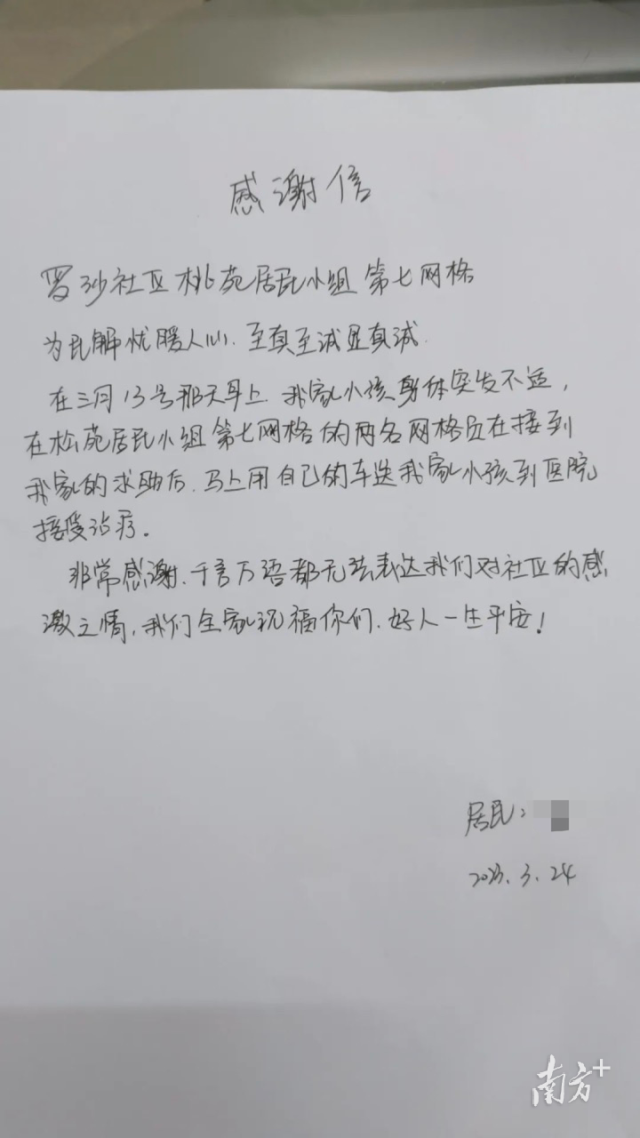 感谢信
罗沙社区桃苑居民小组第七网格
为民解忧暖人心.至真至诚显真诚.
在三月13号那天早上.我家小孩身体突发不适,
在松苑居民小组第七网格的两名网格员在接到
我家的求助后.马上用自己的车送我家小孩到医院
接受治疗。
非常感谢.千言万语都无法表达我们对社区的感
激之情,我们全家祝福你们.好人一生平安!
居民:
2023.3.24
南方+